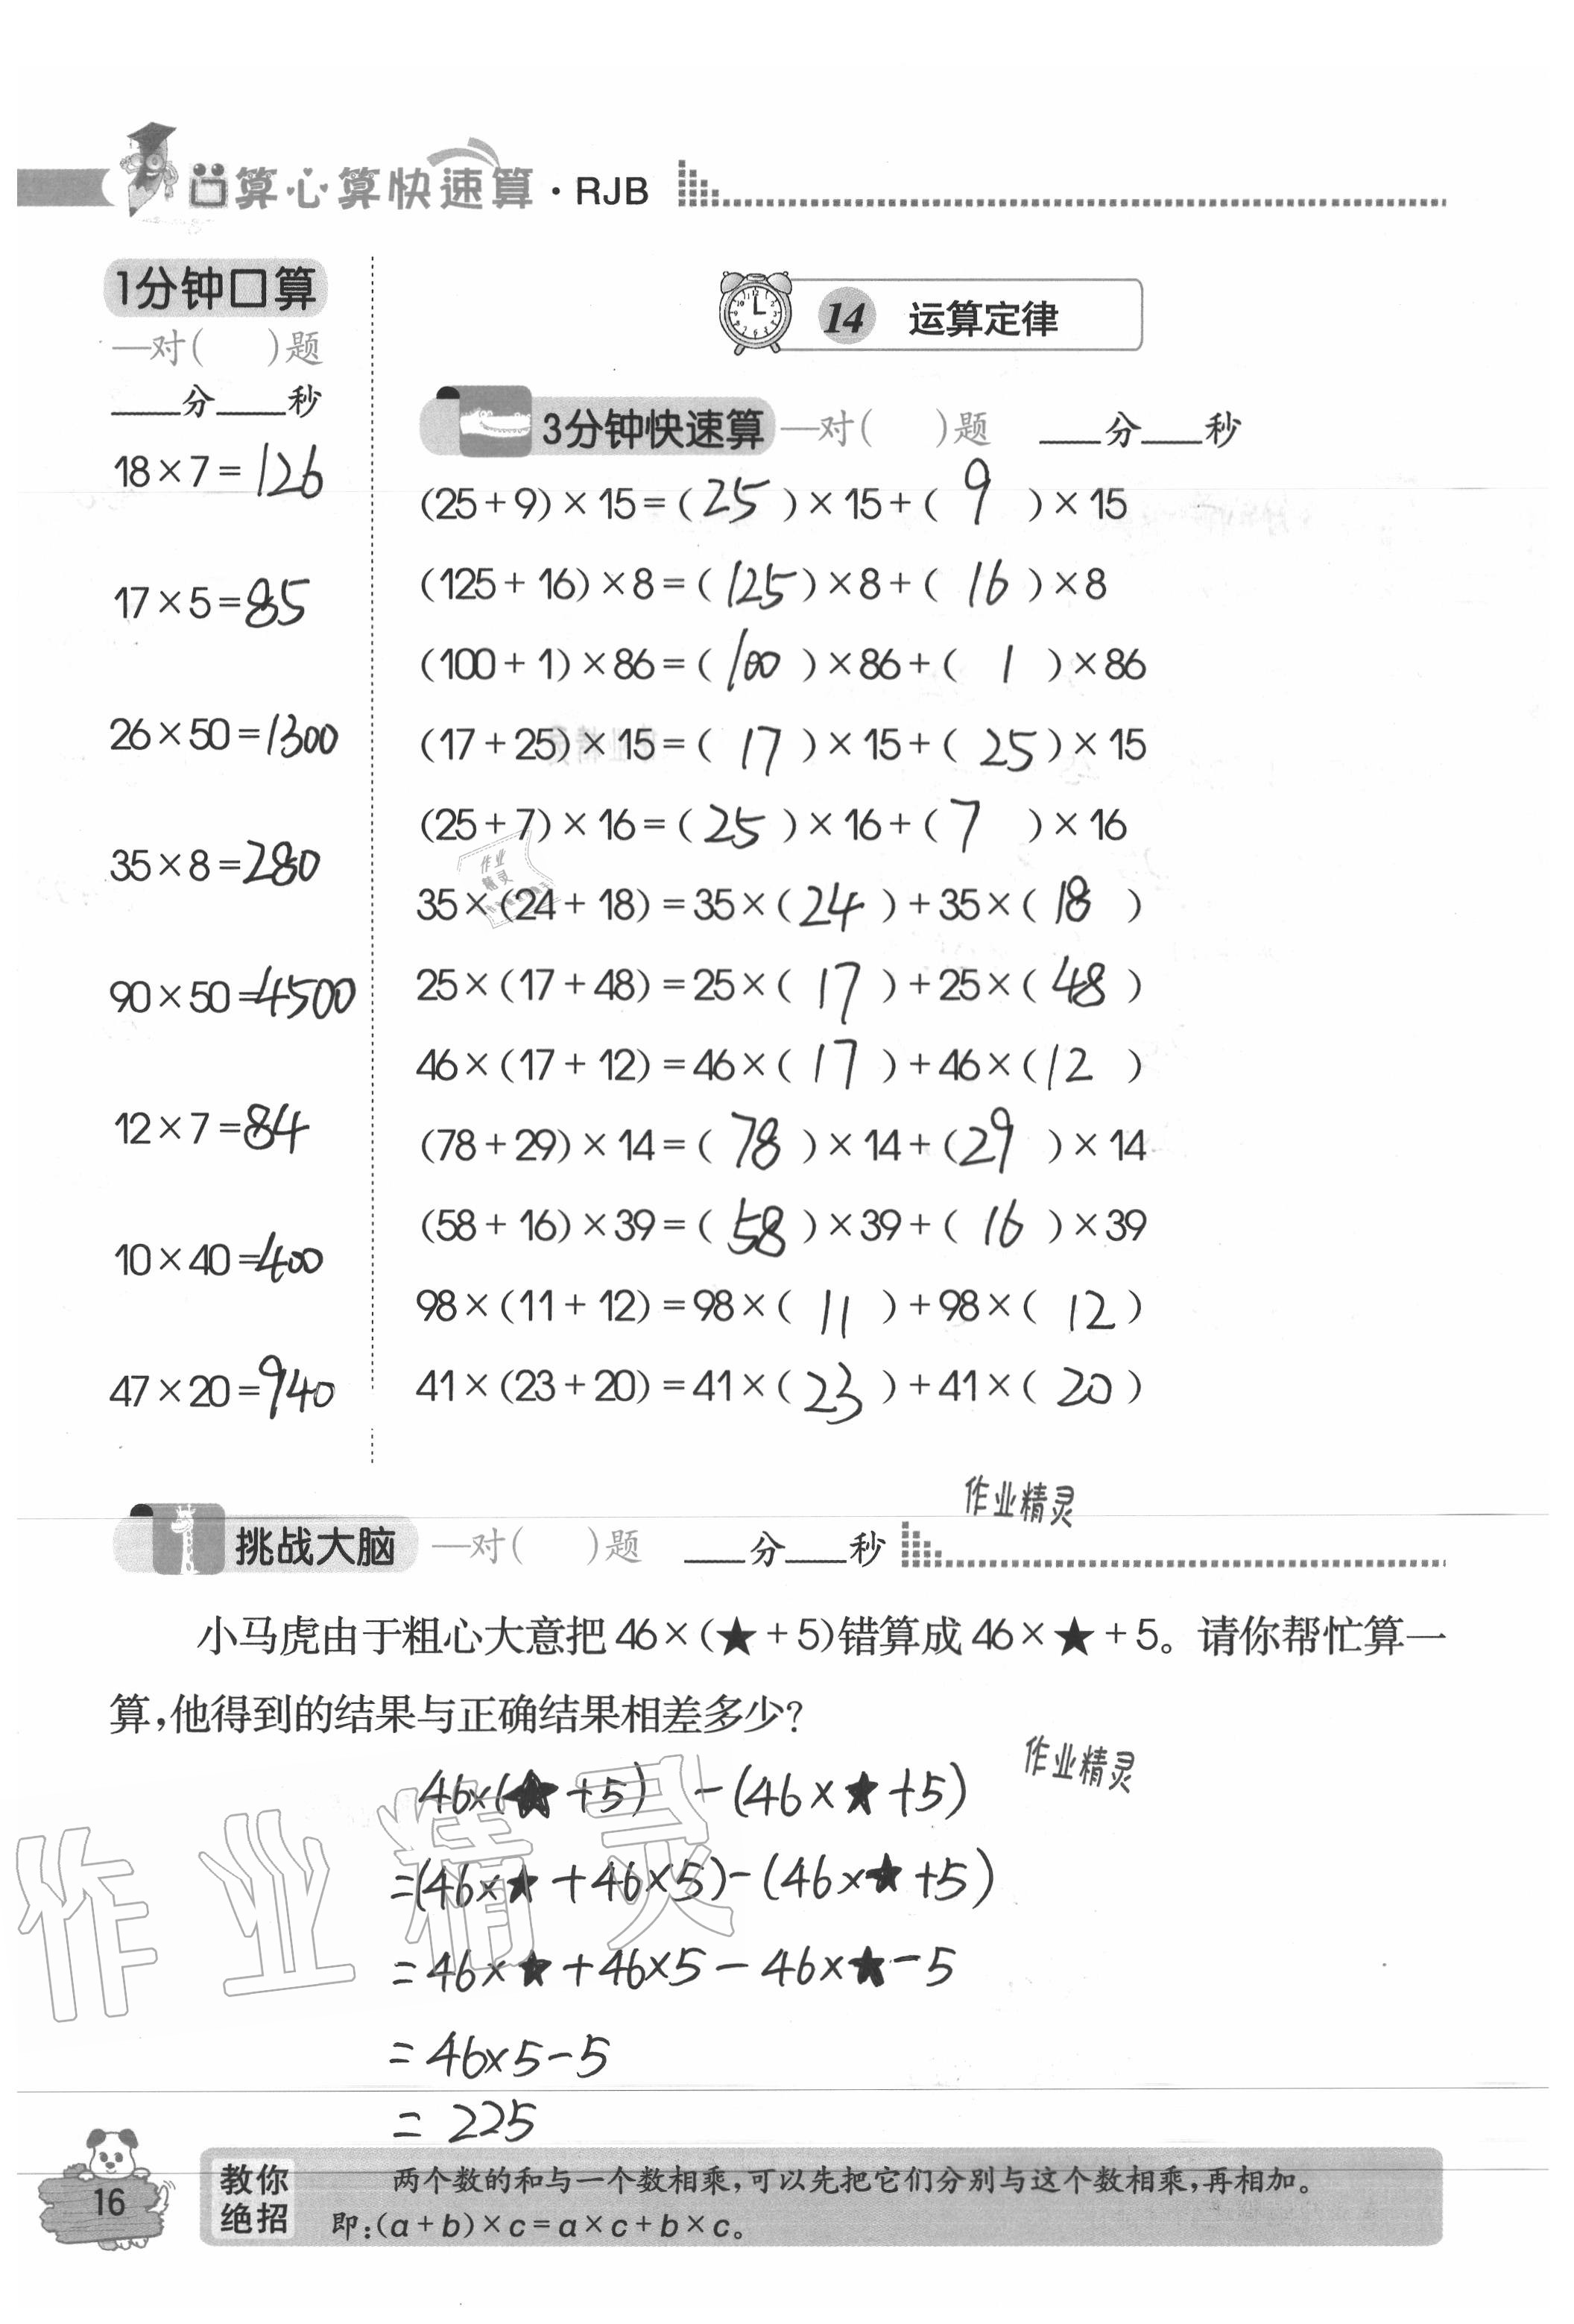 口算心算快速算·RJB
1分钟口算
—对(　　)题
____分____秒
18×7=126
17×5=85
26×50=1300
35×8=280
90×50=4500
12×7=84
10×40=400
47×20=940
14 运算定律
3分钟快速算 —对(　　)题 ____分____秒
(25+9)×15=(25)×15+(9)×15
(125+16)×8=(125)×8+(16)×8
(100+1)×86=(100)×86+(1)×86
(17+25)×15=(17)×15+(25)×15
(25+7)×16=(25)×16+(7)×16
作业
精灵
35×(24+18)=35×(24)+35×(18)
25×(17+48)=25×(17)+25×(48)
46×(17+12)=46×(17)+46×(12)
(78+29)×14=(78)×14+(29)×14
(58+16)×39=(58)×39+(16)×39
98×(11+12)=98×(11)+98×(12)
41×(23+20)=41×(23)+41×(20)
作业精灵
挑战大脑 —对(　　)题 ____分____秒
小马虎由于粗心大意把46×(★+5)错算成46×★+5。请你帮忙算一
算,他得到的结果与正确结果相差多少?
作业精灵
46×(★+5)-(46×★+5)
=(46×★+46×5)-(46×★+5)
=46×★+46×5-46×★-5
=46×5-5
=225
作业精灵
16
教你
绝招
两个数的和与一个数相乘,可以先把它们分别与这个数相乘,再相加。
即:(a+b)×c=a×c+b×c。